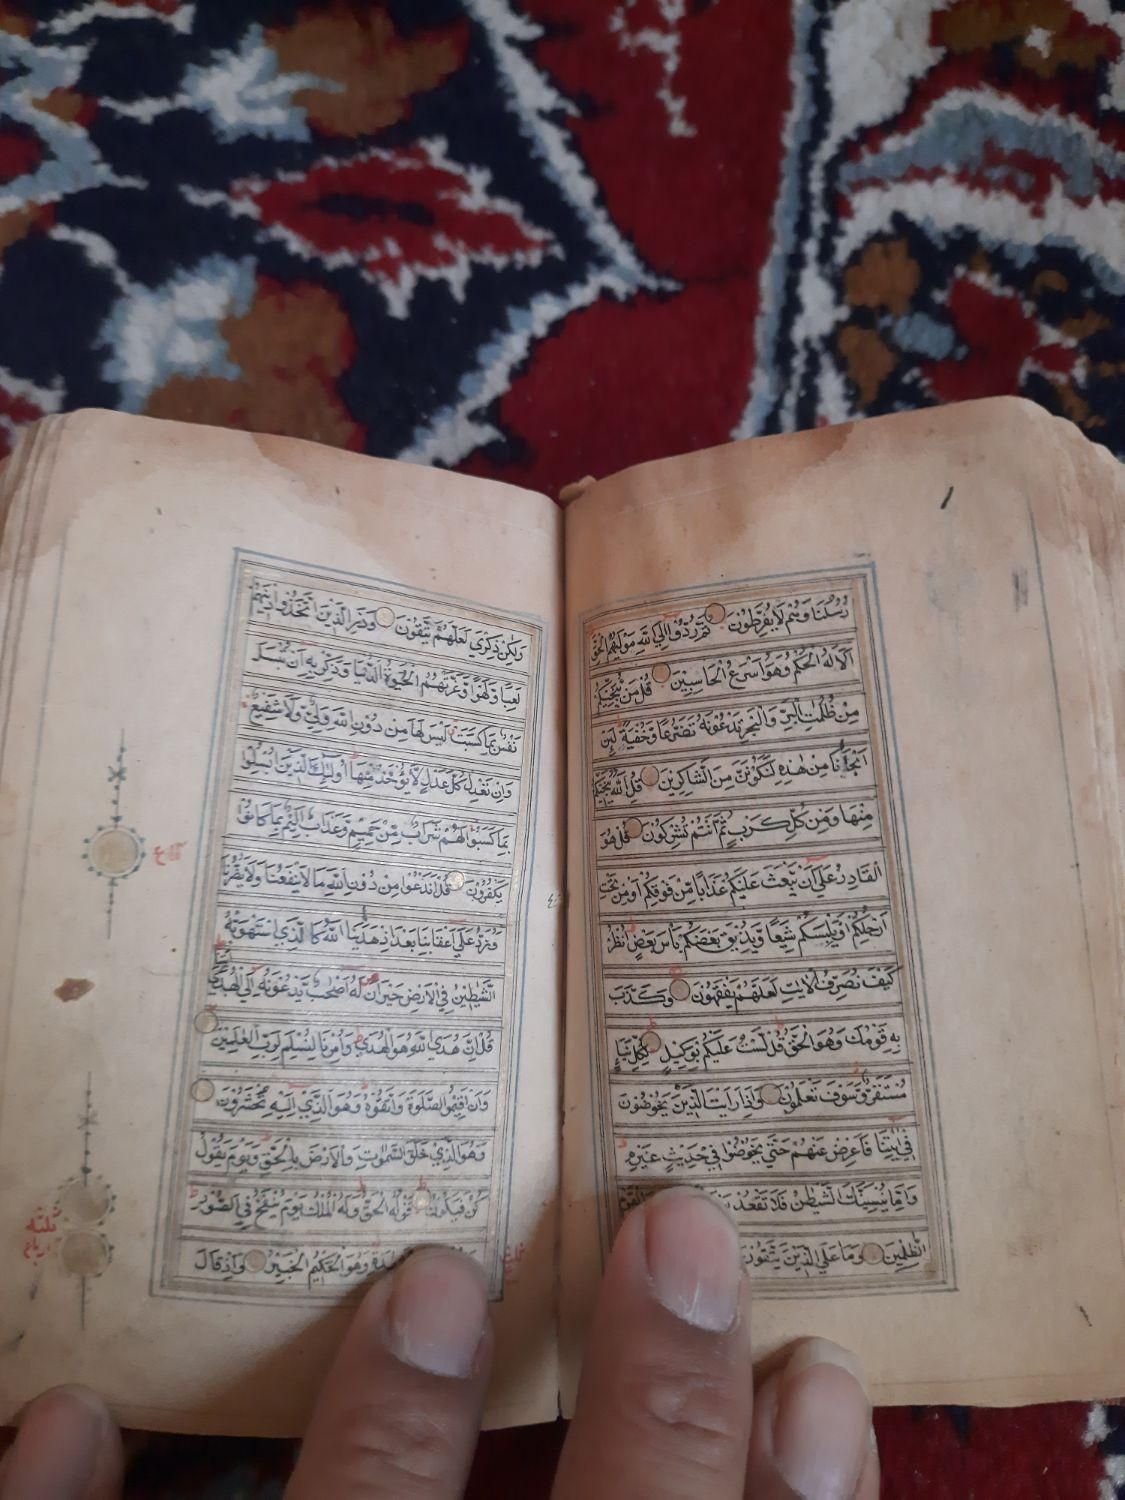 رُسُلُنَا وَهُمْ لَا يُفَرِّطُونَ ثُمَّ رُدُّوا إِلَى اللَّهِ مَوْلٰيهُمُ الْحَقِّ
اَلَا لَهُ الْحُكْمُ وَهُوَ اَسْرَعُ الْحَاسِبِينَ قُلْ مَنْ يُنَجِّيكُمْ
مِنْ ظُلُمَاتِ الْبَرِّ وَالْبَحْرِ تَدْعُونَهُ تَضَرُّعًا وَخُفْيَةً لَئِنْ
اَنْجَانَا مِنْ هٰذِهِ لَنَكُونَنَّ مِنَ الشَّاكِرِينَ قُلِ اللَّهُ يُنَجِّيكُمْ
مِنْهَا وَمِنْ كُلِّ كَرْبٍ ثُمَّ اَنْتُمْ تُشْرِكُونَ قُلْ هُوَ
الْقَادِرُ عَلٰى اَنْ يَبْعَثَ عَلَيْكُمْ عَذَابًا مِنْ فَوْقِكُمْ اَوْ مِنْ تَحْتِ
اَرْجُلِكُمْ اَوْ يَلْبِسَكُمْ شِيَعًا وَيُذِيقَ بَعْضَكُمْ بَأْسَ بَعْضٍ اُنْظُرْ
كَيْفَ نُصَرِّفُ الْاٰيٰتِ لَعَلَّهُمْ يَفْقَهُونَ وَكَذَّبَ
بِهِ قَوْمُكَ وَهُوَ الْحَقُّ قُلْ لَسْتُ عَلَيْكُمْ بِوَكِيلٍ لِكُلِّ نَبَإٍ
مُسْتَقَرٌّ وَسَوْفَ تَعْلَمُونَ وَاِذَا رَاَيْتَ الَّذِينَ يَخُوضُونَ
فِي اٰيٰتِنَا فَاَعْرِضْ عَنْهُمْ حَتّٰى يَخُوضُوا فِي حَدِيثٍ غَيْرِهِ
وَاِمَّا يُنْسِيَنَّكَ الشَّيْطٰنُ فَلَا تَقْعُدْ الْقَوْمِ
الظّٰلِمِينَ وَمَا عَلَى الَّذِينَ يَتَّقُونَ
وَلٰكِنْ ذِكْرٰى لَعَلَّهُمْ يَتَّقُونَ وَذَرِ الَّذِينَ اتَّخَذُوا دِينَهُمْ
لَعِبًا وَلَهْوًا وَغَرَّتْهُمُ الْحَيٰوةُ الدُّنْيَا وَذَكِّرْ بِهِ اَنْ تُبْسَلَ
نَفْسٌ بِمَا كَسَبَتْ لَيْسَ لَهَا مِنْ دُونِ اللَّهِ وَلِيٌّ وَلَا شَفِيعٌ
وَاِنْ تَعْدِلْ كُلَّ عَدْلٍ لَا يُؤْخَذْ مِنْهَا اُولٰئِكَ الَّذِينَ اُبْسِلُوا
بِمَا كَسَبُوا لَهُمْ شَرَابٌ مِنْ حَمِيمٍ وَعَذَابٌ اَلِيمٌ بِمَا كَانُوا
يَكْفُرُونَ قُلْ اَنَدْعُوا مِنْ دُونِ اللَّهِ مَا لَا يَنْفَعُنَا وَلَا يَضُرُّنَا
وَنُرَدُّ عَلٰى اَعْقَابِنَا بَعْدَ اِذْ هَدٰينَا اللَّهُ كَالَّذِي اسْتَهْوَتْهُ
الشَّيٰطِينُ فِي الْاَرْضِ حَيْرَانَ لَهُ اَصْحٰبٌ يَدْعُونَهُ اِلَى الْهُدَى ائْتِنَا
قُلْ اِنَّ هُدَى اللَّهِ هُوَ الْهُدٰى وَاُمِرْنَا لِنُسْلِمَ لِرَبِّ الْعٰلَمِينَ
وَاَنْ اَقِيمُوا الصَّلٰوةَ وَاتَّقُوهُ وَهُوَ الَّذِي اِلَيْهِ تُحْشَرُونَ
وَهُوَ الَّذِي خَلَقَ السَّمٰوَاتِ وَالْاَرْضَ بِالْحَقِّ وَيَوْمَ يَقُولُ
كُنْ فَيَكُونُ قَوْلُهُ الْحَقُّ وَلَهُ الْمُلْكُ يَوْمَ يُنْفَخُ فِي الصُّورِ
وَهُوَ الْحَكِيمُ الْخَبِيرُ وَاِذْ قَالَ